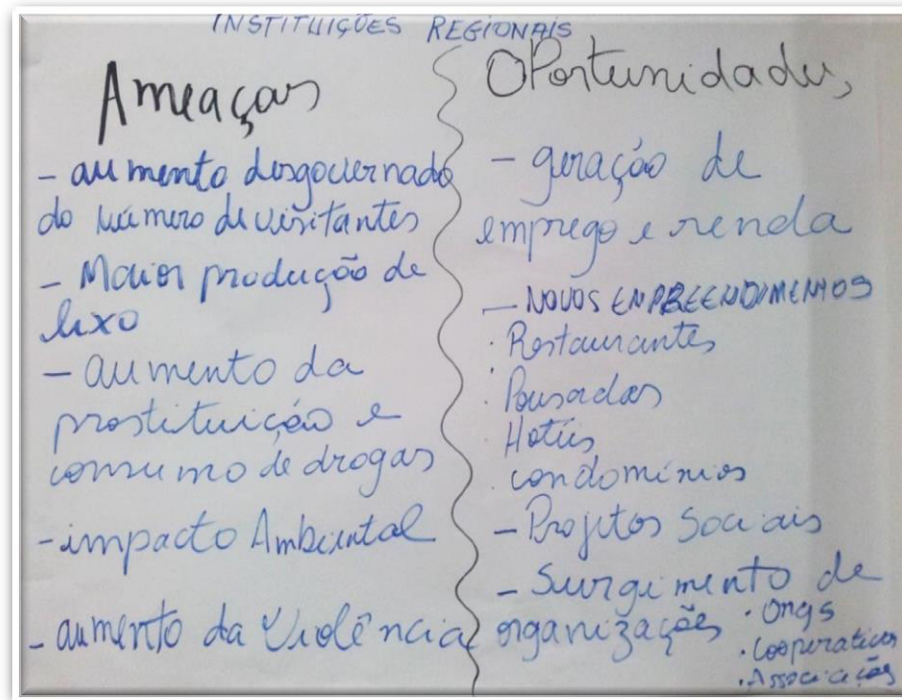 INSTITUIÇÕES REGIONAIS
Ameaças
- aumento desgovernado
do número de visitantes
- Maior produção de
lixo
- aumento da
prostituição e
consumo de drogas
- impacto Ambiental
- aumento da Violência
Oportunidades,
- geração de
emprego e renda
- NOVOS ENPREENDIMENTOS
· Restaurantes
· Pousadas
Hotéis
· condomínios
- Projetos Sociais
- Surgimento de
organizações · Ongs
· Cooperativas
· Associações